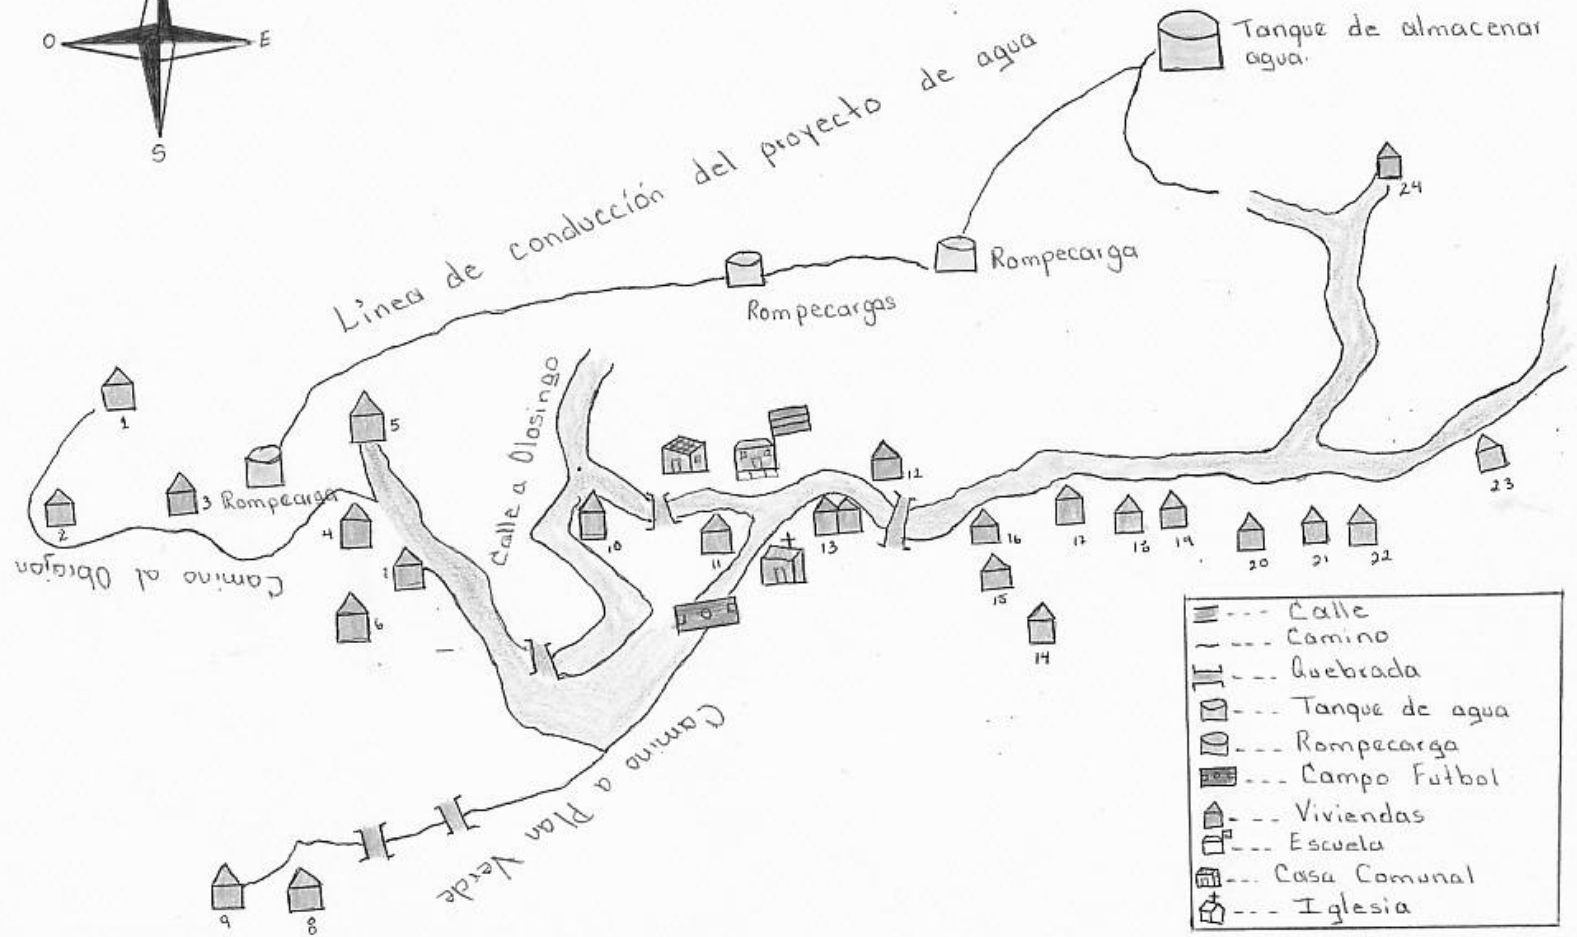 O
E
S
Tanque de almacenar
agua.
Línea de conducción del proyecto de agua
24
Rompecarga
Rompecargas
1
5
Calle a Olosingo
12
3
Rompecarga
2
4
10
11
13
16
17
18
19
20
21
22
23
Camino al Obrajon
15
6
14
Camino a Plan Verde
9
8
--- Calle
--- Camino
--- Quebrada
--- Tanque de agua
--- Rompecarga
--- Campo Futbol
--- Viviendas
--- Escuela
--- Casa Comunal
--- Iglesia